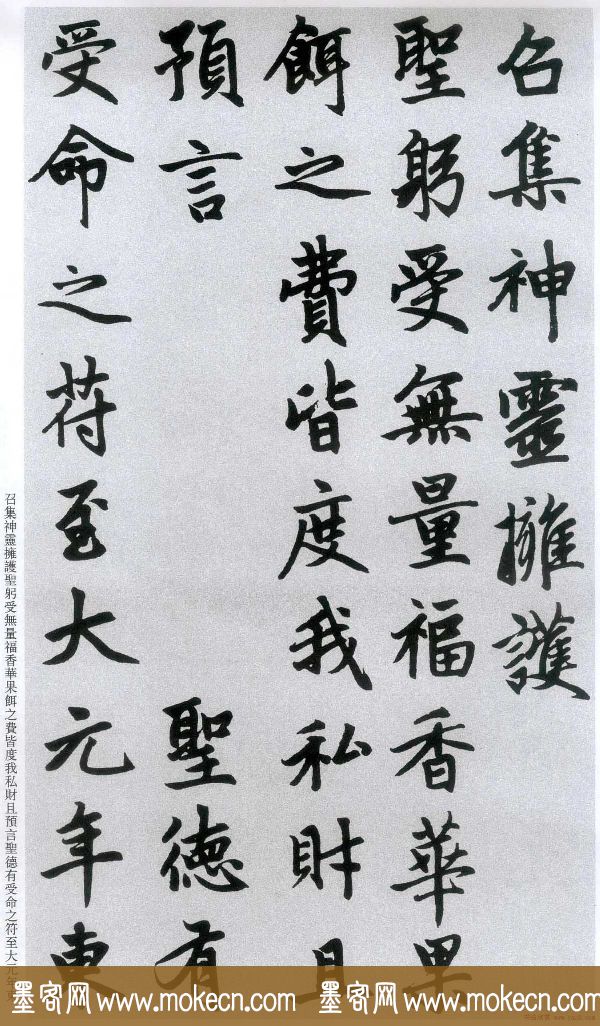 召集神靈擁護
聖躬受無量福香華果
餌之費皆度我私財且
預言 聖德有
受命之符至大元年東
召集神靈擁護聖躬受無量福香華果餌之費皆度我私財且預言聖德有受命之符至大元年東
墨客网 www.mokecn.com 墨客网 www.mokecn.com